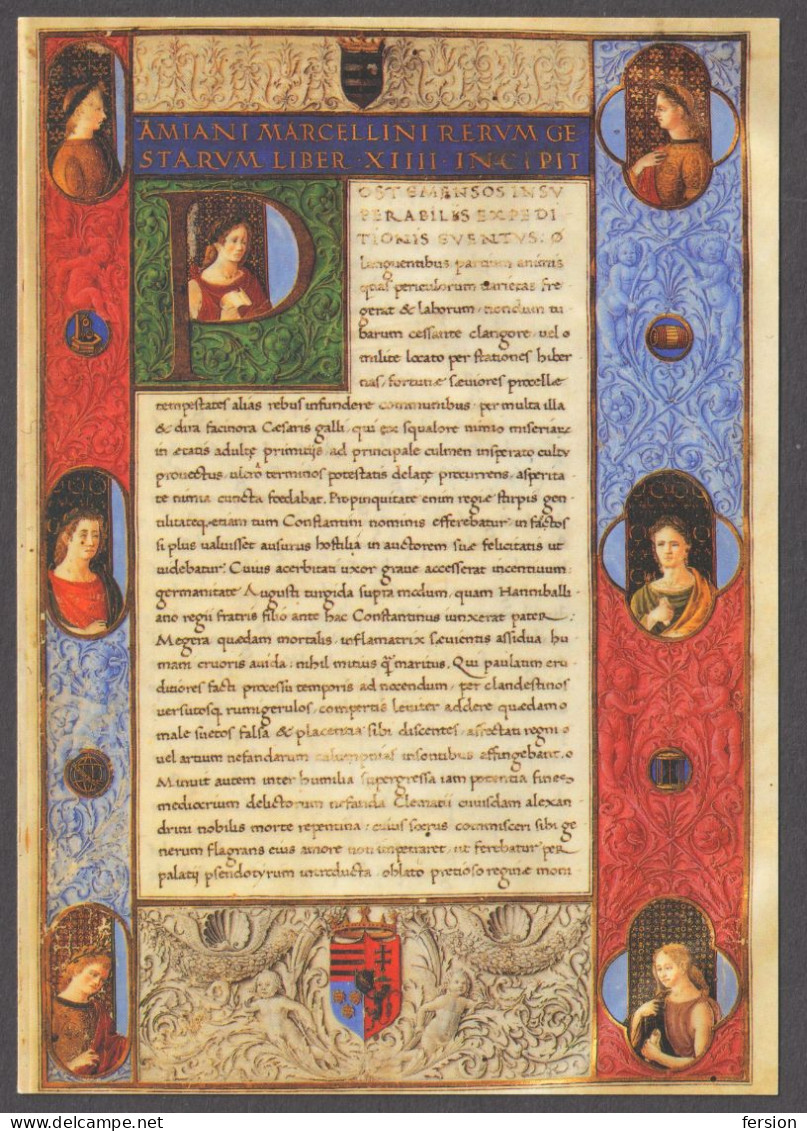 AMIANI MARCELLINI RERVM GE
STARVM LIBER · XIIII · INCIPIT
POST EMENSOS INSV
PERABILIS EXPEDI
TIONIS EVENTVS:
languentibus partium animis
quas periculorum varietas fre
gerat & laborum, nondum tu
barum cessante clangore, vel
milite locato per stationes hiber
nas, fortunæ sæviores procellæ
tempestates alias rebus infundere communibus per multa illa
& dira facinora Cæsaris galli, qui ex squalore nimio miseriarum
in ætatis adultę primitijs ad principale culmen insperato cultu
provectus, ultro terminos potestatis delatę procurrens, asperita
te nimia cuncta foedabat. Propinquitate enim regię stirpis gen
tilitateq; etiam tum Constantini nominis efferebatur in fastos
si plus valuisset ausurus hostilia in auctorem suę felicitatis ut
videbatur. Cuius acerbitati uxor grave accesserat incentivum:
germanitate Augusti turgida supra modum, quam Hanniballi
ano regii fratris filio ante hac Constantinus iunxerat pater.
Megera quædam mortalis, inflamatrix sævientis assidua hu
mani cruoris avida, nihil mitius q̃ maritus. Qui paulatim eru
ditiores facti processu temporis ad nocendum, per clandestinos
versutosq; rumigerulos, compertis leviter addere quædam
male suetos falsa & placentia sibi discentes, affectati regni
vel artium nefandarum calumnias insontibus affingebant.
Minuit autem inter humilia supergressa iam potentia fines
mediocrium delictorum nefanda Clematii cuiusdam alexan
drini nobilis morte repentina: cuius socrus commisceri sibi ge
nerum flagrans eius amore non impetraret, ut ferebatur per
palatij pseudotyrum introducta, oblato pretioso reginæ moni
fersion